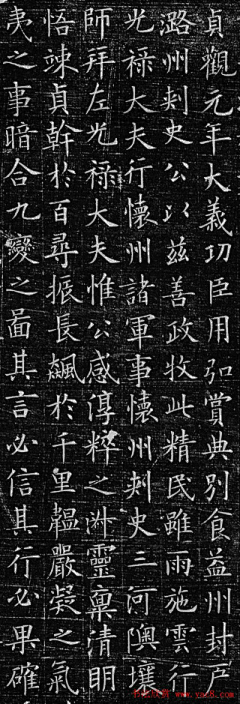 貞觀元年大義功臣用弘賞典別食益州封戶
潞州刺史公以茲善政牧此精民雖雨施雲行
光祿大夫行懷州諸軍事懷州刺史三河隩壤
師拜左光祿大夫惟公感淳粹之淑靈稟清明
悟竦貞幹於百尋振長飆於千里韞嚴凝之氣
夷之事暗合九變之啚其言必信其行必果確
www.yac8.com